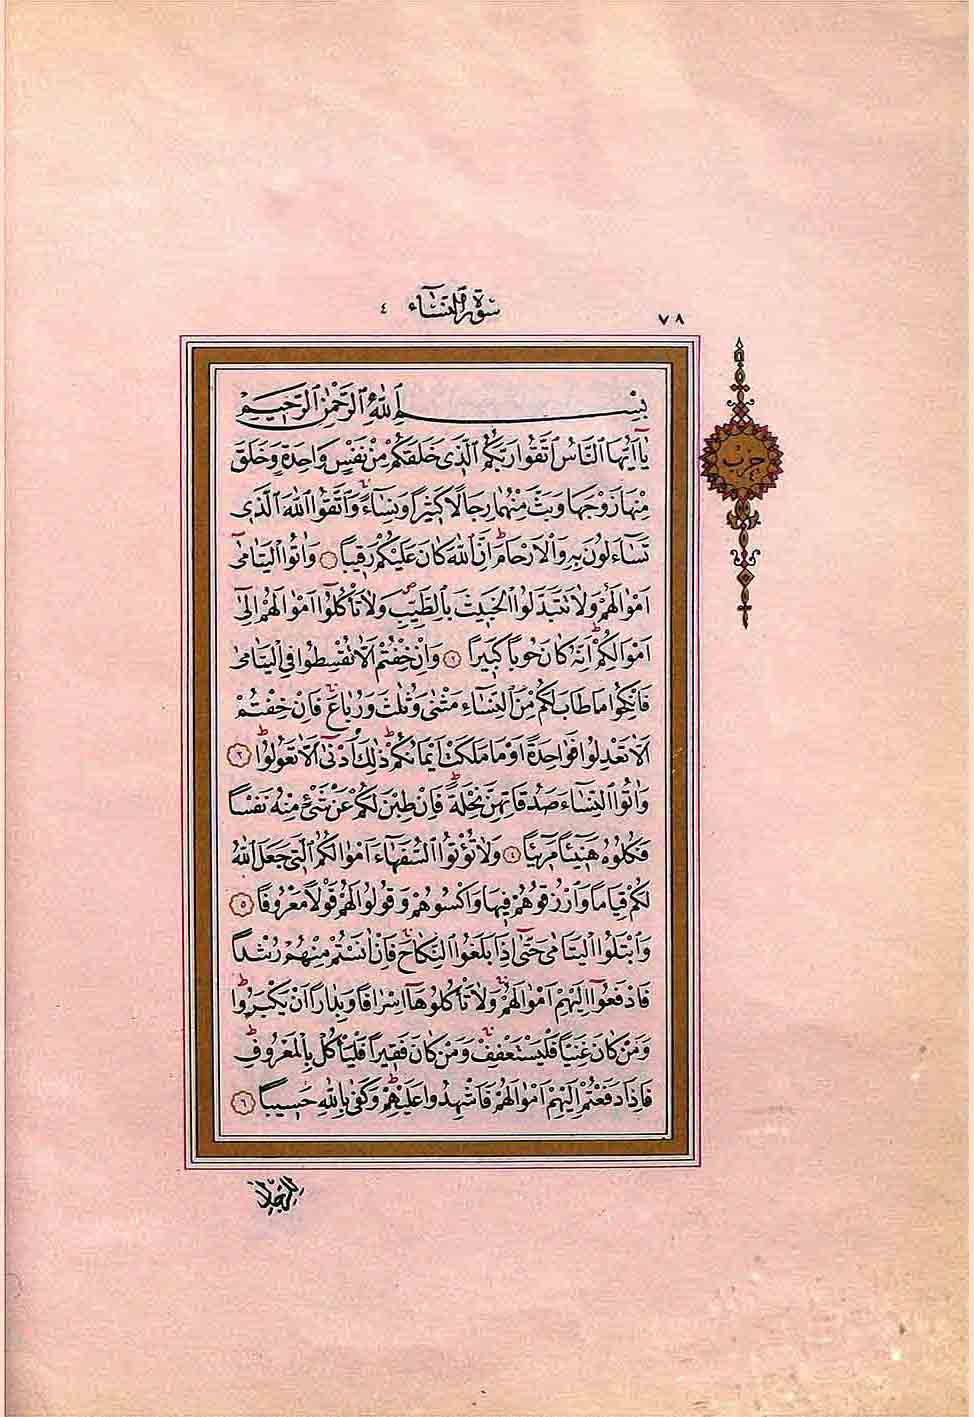 سورة النساء ٤
٧٨
حزب
بِسْمِ اللّٰهِ الرَّحْمٰنِ الرَّحِيمِ
يَٓا اَيُّهَا النَّاسُ اتَّقُوا رَبَّكُمُ الَّذ۪ي خَلَقَكُمْ مِنْ نَفْسٍ وَاحِدَةٍ وَخَلَقَ
مِنْهَا زَوْجَهَا وَبَثَّ مِنْهُمَا رِجَالًا كَث۪يرًا وَنِسَٓاءًۚ وَاتَّقُوا اللّٰهَ الَّذ۪ي
تَسَٓاءَلُونَ بِه۪ وَالْاَرْحَامَۜ اِنَّ اللّٰهَ كَانَ عَلَيْكُمْ رَق۪يبًا ١ وَاٰتُوا الْيَتَامٰٓى
اَمْوَالَهُمْ وَلَا تَتَبَدَّلُوا الْخَب۪يثَ بِالطَّيِّبِۖ وَلَا تَأْكُلُٓوا اَمْوَالَهُمْ اِلٰٓى
اَمْوَالِكُمْۜ اِنَّهُ كَانَ حُوبًا كَب۪يرًا ٢ وَاِنْ خِفْتُمْ اَلَّا تُقْسِطُوا فِي الْيَتَامٰى
فَانْكِحُوا مَا طَابَ لَكُمْ مِنَ النِّسَٓاءِ مَثْنٰى وَثُلٰثَ وَرُبَاعَۚ فَاِنْ خِفْتُمْ
اَلَّا تَعْدِلُوا فَوَاحِدَةً اَوْ مَا مَلَكَتْ اَيْمَانُكُمْۜ ذٰلِكَ اَدْنٰٓى اَلَّا تَعُولُواۜ ٣
وَاٰتُوا النِّسَٓاءَ صَدُقَاتِهِنَّ نِحْلَةًۜ فَاِنْ طِبْنَ لَكُمْ عَنْ شَيْءٍ مِنْهُ نَفْسًا
فَكُلُوهُ هَن۪ٓيئًا مَر۪ٓيئًا ٤ وَلَا تُؤْتُوا السُّفَهَٓاءَ اَمْوَالَكُمُ الَّت۪ي جَعَلَ اللّٰهُ
لَكُمْ قِيَامًا وَارْزُقُوهُمْ ف۪يهَا وَاكْسُوهُمْ وَقُولُوا لَهُمْ قَوْلًا مَعْرُوفًا ٥
وَابْتَلُوا الْيَتَامٰى حَتّٰٓى اِذَا بَلَغُوا النِّكَاحَۚ فَاِنْ اٰنَسْتُمْ مِنْهُمْ رُشْدًا
فَادْفَعُٓوا اِلَيْهِمْ اَمْوَالَهُمْۚ وَلَا تَأْكُلُوهَٓا اِسْرَافًا وَبِدَارًا اَنْ يَكْبَرُواۜ
وَمَنْ كَانَ غَنِيًّا فَلْيَسْتَعْفِفْۚ وَمَنْ كَانَ فَق۪يرًا فَلْيَأْكُلْ بِالْمَعْرُوفِۜ
فَاِذَا دَفَعْتُمْ اِلَيْهِمْ اَمْوَالَهُمْ فَاَشْهِدُوا عَلَيْهِمْۜ وَكَفٰى بِاللّٰهِ حَس۪يبًا ٦
لِلرِّجَالِ